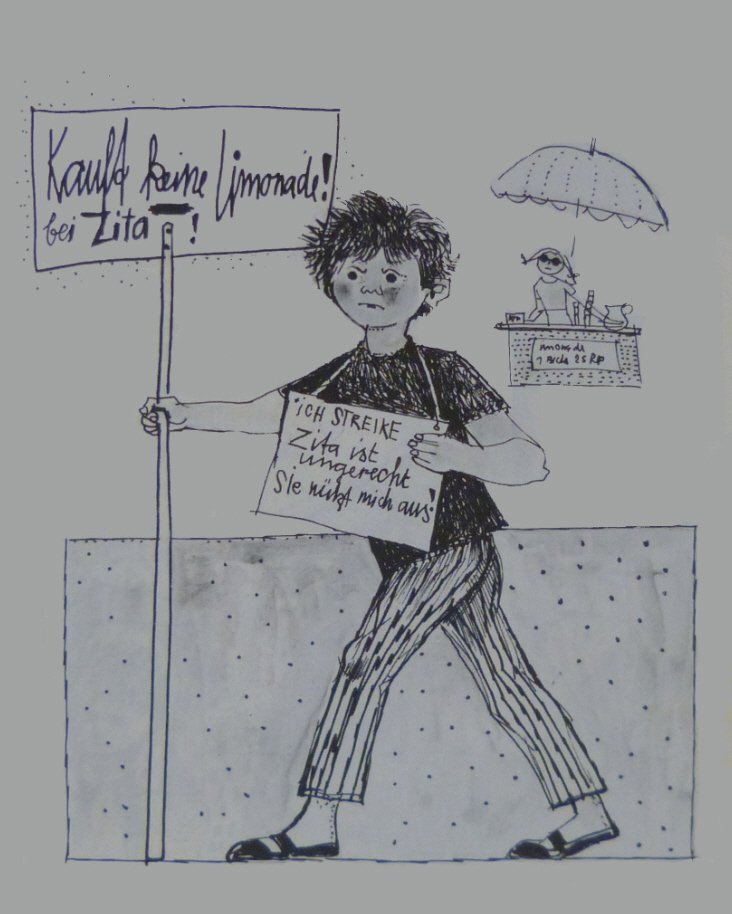 Kauft keine Limonade!
bei Zita!
ICH STREIKE
Zita ist
ungerecht
Sie nützt mich aus!
1 Bech 25 Rp